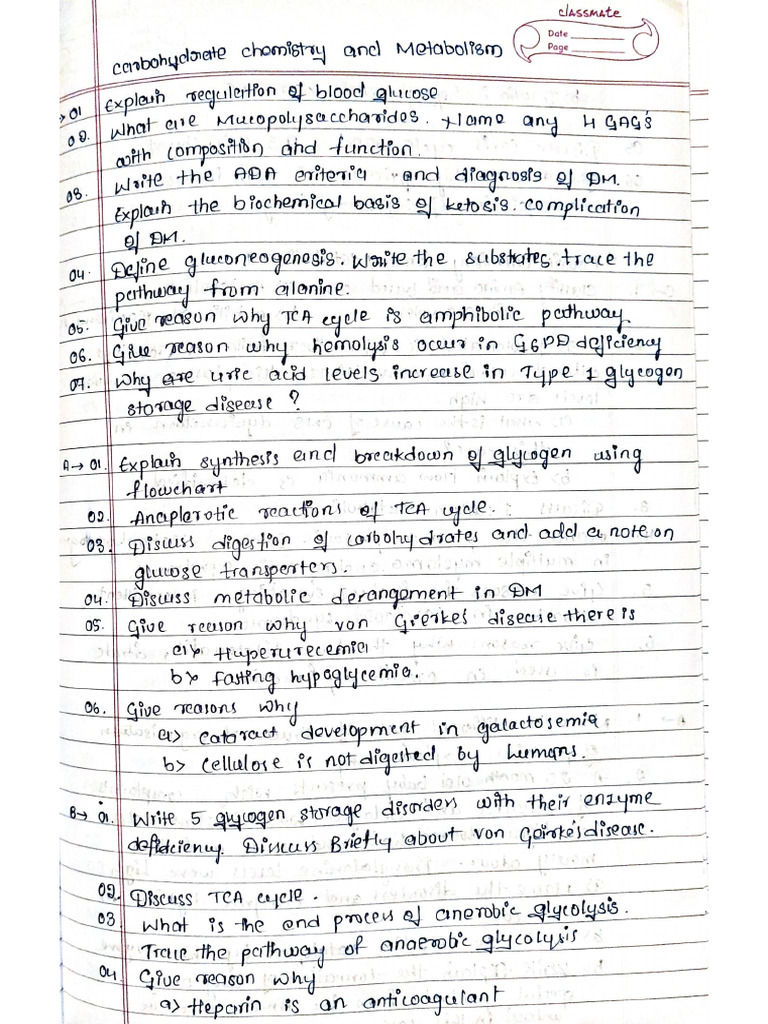 classmate
Date
Page
Carbohydrate chemistry and Metabolism
→ 01 Explain regulation of blood glucose
02. What are Mucopolysaccharides. Name any 4 GAG's
with composition and function.
03. Write the ADA criteria and diagnosis of DM.
Explain the biochemical basis of ketosis. complication
of DM.
04. Define gluconeogenesis. Write the substrates. trace the
pathway from alanine.
05. Give reason why TCA cycle is amphibolic pathway
06. Give reason why hemolysis occur in G6PD deficiency
07. Why are uric acid levels increase in Type 1 glycogen
storage disease ?
A→ 01. Explain synthesis and breakdown of glycogen using
flowchart
02. Anaplerotic reactions of TCA cycle.
03. Discuss digestion of carbohydrates and add a note on
glucose transporters.
04. Discuss metabolic derangement in DM
05. Give reason why von Gierke's disease there is
a) Huperurecemia
b) fasting hypoglycemia.
06. Give reasons why
a) cataract development in galactosemia
b) cellulose is not digested by humans.
B→ 01. Write 5 glycogen storage disorders with their enzyme
deficiency. Discuss Briefly about von Geirke's disease.
02. Discuss TCA cycle.
03 What is the end process of anerobic glycolysis.
Trace the pathway of anaerobic glycolysis
04 Give reason why
a) Heparin is an anticoagulant